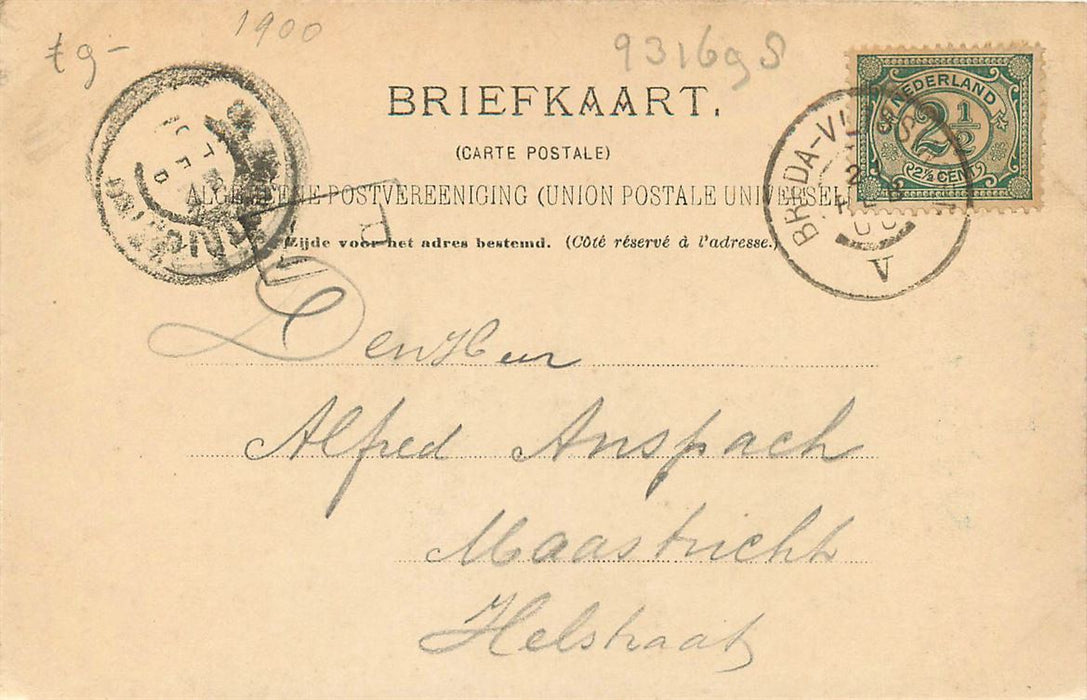 1900
9-
93169S
BRIEFKAART.
(CARTE POSTALE)
ALGEMEENE POSTVEREENIGING (UNION POSTALE UNIVERSEL
Zijde voor het adres bestemd. (Côté réservé à l'adresse.)
NEDERLAND
2½
2½ CENT
BREDA-VL
V
Den Heer
Alfred Anspach
Maastricht
Helstraat